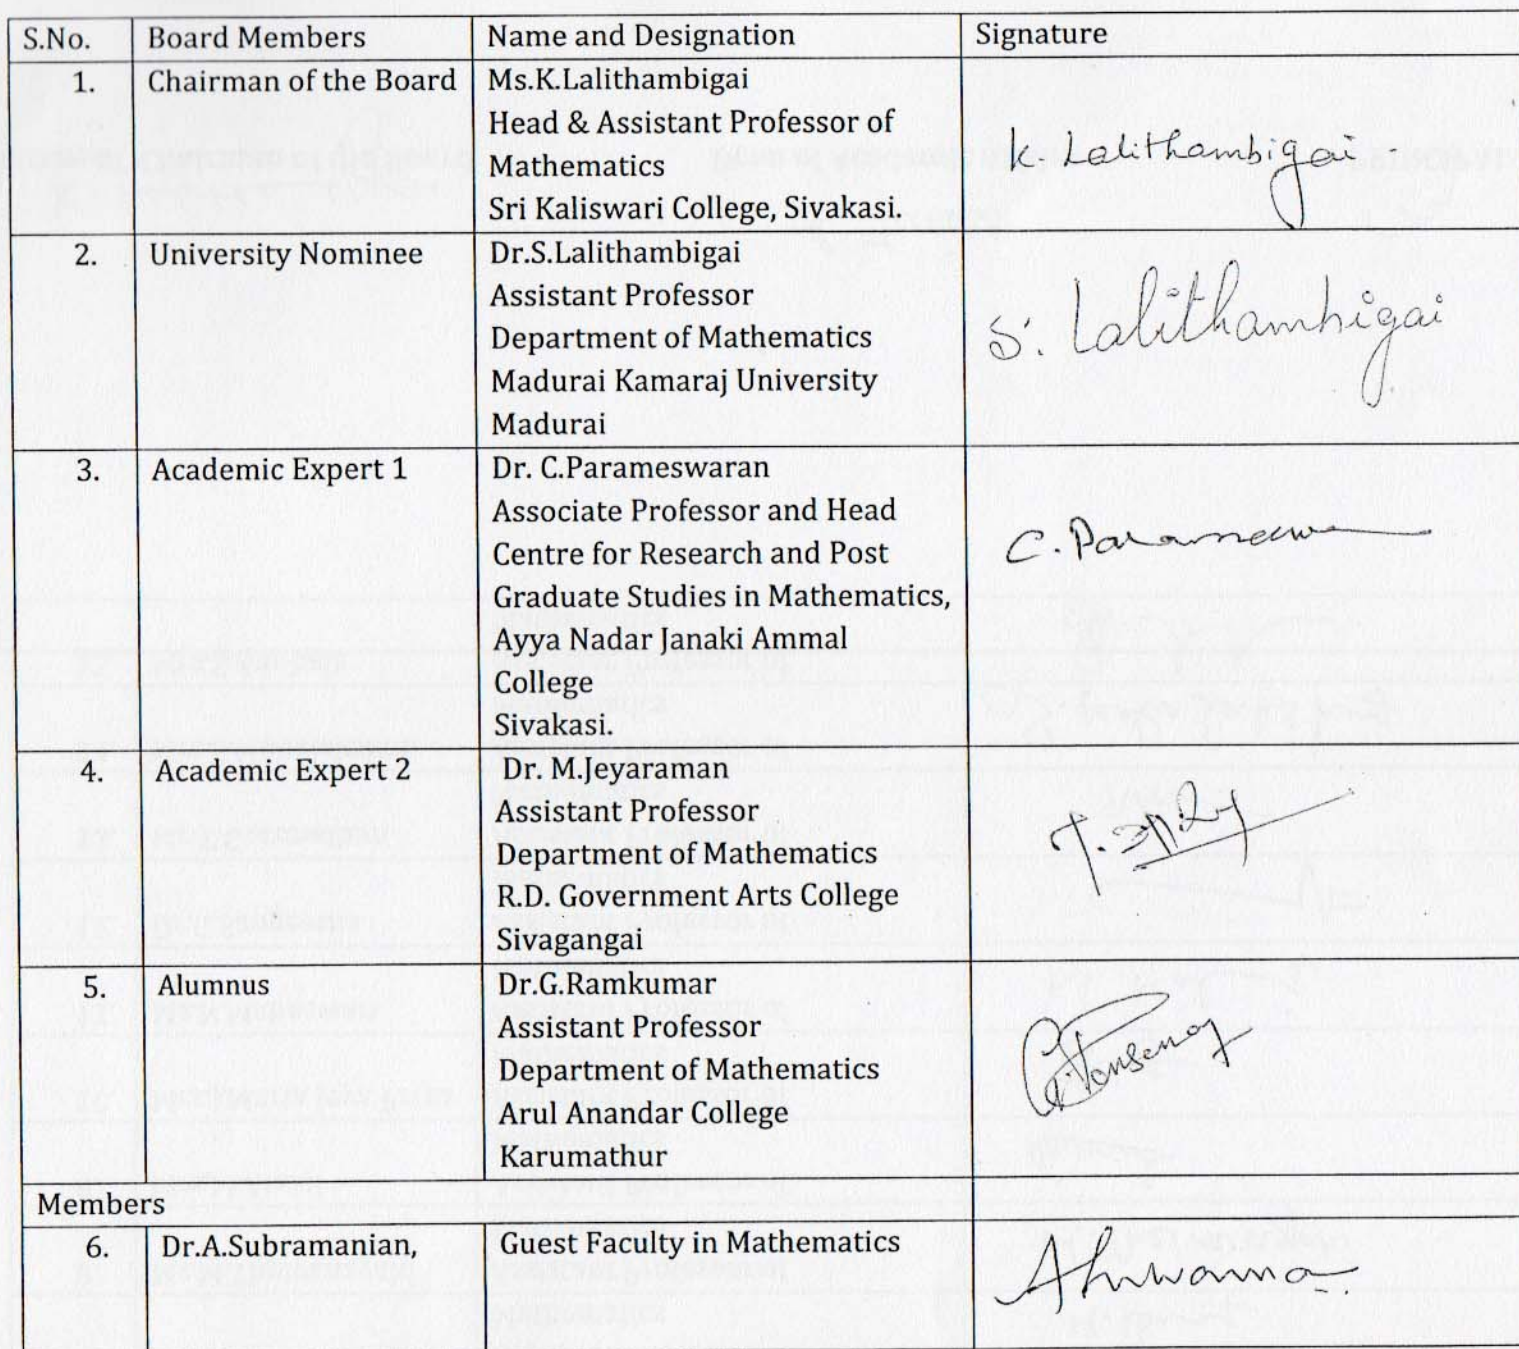 S.No. Board Members Name and Designation Signature
1. Chairman of the Board Ms.K.Lalithambigai
Head & Assistant Professor of
Mathematics
Sri Kaliswari College, Sivakasi.
K. Lalithambigai
2. University Nominee Dr.S.Lalithambigai
Assistant Professor
Department of Mathematics
Madurai Kamaraj University
Madurai
S. Lalithambigai
3. Academic Expert 1 Dr. C.Parameswaran
Associate Professor and Head
Centre for Research and Post
Graduate Studies in Mathematics,
Ayya Nadar Janaki Ammal
College
Sivakasi.
4. Academic Expert 2 Dr. M.Jeyaraman
Assistant Professor
Department of Mathematics
R.D. Government Arts College
Sivagangai
5. Alumnus Dr.G.Ramkumar
Assistant Professor
Department of Mathematics
Arul Anandar College
Karumathur
Members
6. Dr.A.Subramanian, Guest Faculty in Mathematics